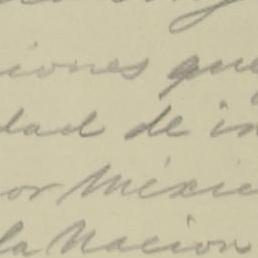 iones que
dad de in
or Méxic
la Nacion